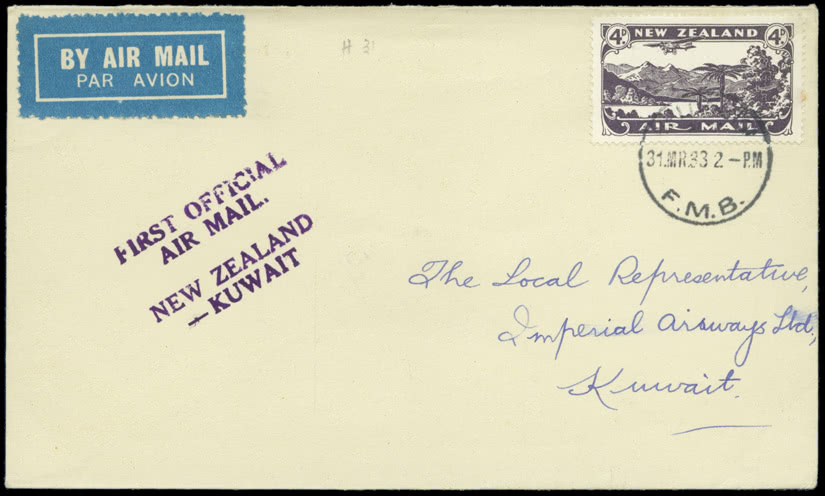 BY AIR MAIL
PAR AVION
H 31
4D NEW ZEALAND 4D
AIR MAIL
31 MR 33 2 - PM
F.M.B.
FIRST OFFICIAL
AIR MAIL.
NEW ZEALAND
—KUWAIT
The Local Representative,
Imperial Airways Ltd,
Kuwait.